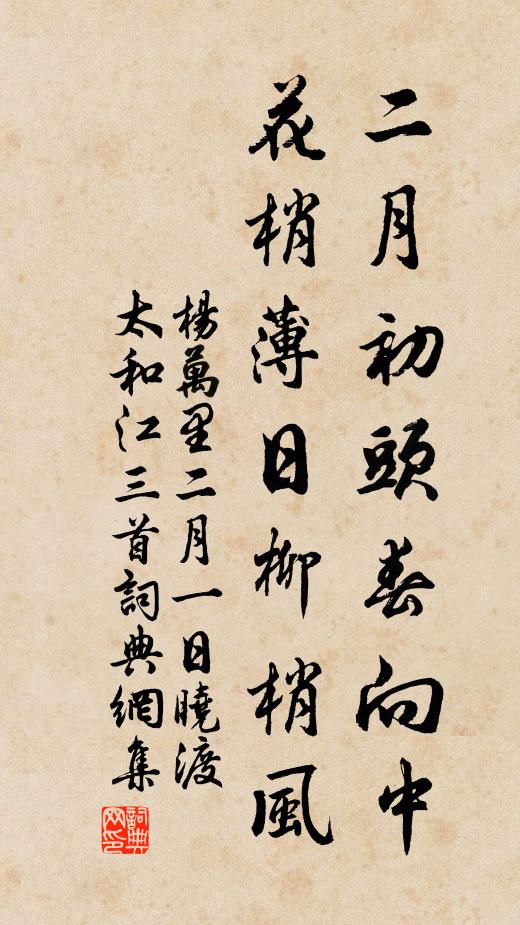 二月初頭春向中
花梢薄日柳梢風
楊萬里二月一日曉渡
太和江三首詞典網集
詞典
网印